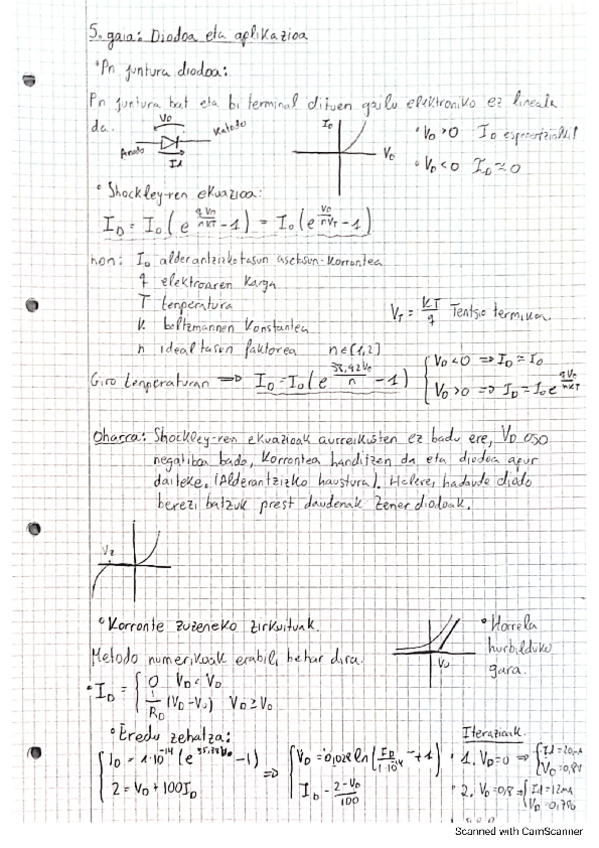 5. gaia: Diodoa eta aplikazioa
• Pn juntura diodoa:
Pn juntura bat eta bi terminal dituen gailu elektroniko ez lineala
da.
VD
Anodo
Katodo
Id
ID
VD
• VD > 0 ID esponentzialki!
• VD < 0 ID ≈ 0
• Shockley-ren ekuazioa:
ID = I0 (e^(qVD/nKT) - 1) = I0 (e^(VD/nVT) - 1)
non: I0 alderantzizkotasun asetsun-korrontea
q elektroaren karga
T tenperatura
K boltzmannen konstantea
n idealtasun faktorea n∈[1,2]
VT = KT/q Tentsio termikoa
Giro tenperaturan ⟹ ID = I0 (e^(38,92VD/n) - 1)
VD < 0 ⟹ ID ≈ I0
VD > 0 ⟹ ID = I0 e^(qVD/nKT)
Oharra: Shockley-ren ekuazioak aurreikusten ez badu ere, VD oso
negatiboa bada, korrontea handitzen da eta diodoa apur
daiteke. (Alderantzizko haustura). Halere, badaude diodo
berezi batzuk prest daudenak Zener diodoak.
VZ
• Korronte zuzeneko zirkuituak.
Metodo numerikoak erabili behar dira.
• Horrela
hurbilduko
gara.
• ID = { 0 VD <
1/RD (VD -
• Eredu zehatza:
ID = 1·10^-14 (e^ - 1)
2 = VD + 100ID
⟹ VD = 0,026 ln(ID/1·10^-14 + 1)
ID = 2-VD/100
Iterazioak
• 1. VD=0 ⟹ { Id=20mA
• 2. VD=0,8 ⟹ { Id=12mA
Scanned with CamScanner